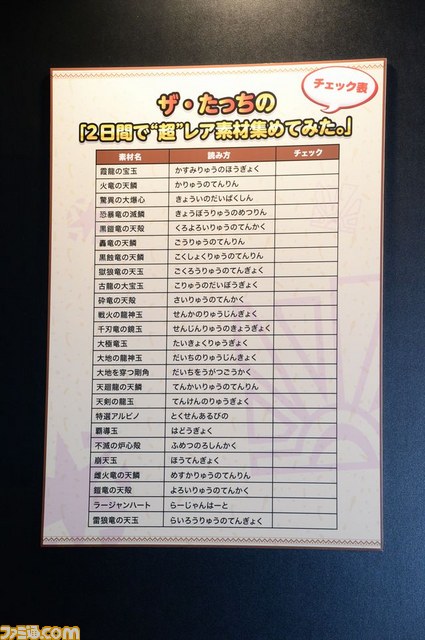 チェック表
ザ・たっちの
「2日間で“超”レア素材集めてみた。」
素材名 読み方 チェック
霞龍の宝玉 かすみりゅうのほうぎょく
火竜の天鱗 かりゅうのてんりん
驚異の大爆心 きょういのだいばくしん
恐暴竜の滅鱗 きょうぼうりゅうのめつりん
黒鎧竜の天殻 くろよろいりゅうのてんかく
轟竜の天鱗 ごうりゅうのてんりん
黒蝕竜の天鱗 こくしょくりゅうのてんりん
獄狼竜の天玉 ごくろうりゅうのてんぎょく
古龍の大宝玉 こりゅうのだいほうぎょく
砕竜の天殻 さいりゅうのてんかく
戦火の龍神玉 せんかのりゅうじんぎょく
千刃竜の鏡玉 せんじんりゅうのきょうぎょく
大極竜玉 たいきょくりゅうぎょく
大地の龍神玉 だいちのりゅうじんぎょく
大地を穿つ剛角 だいちをうがつごうかく
天廻龍の天鱗 てんかいりゅうのてんりん
天剣の龍玉 てんけんのりゅうぎょく
特選アルビノ とくせんあるびの
覇導玉 はどうぎょく
不滅の炉心殻 ふめつのろしんかく
崩天玉 ほうてんぎょく
雌火竜の天鱗 めすかりゅうのてんりん
鎧竜の天殻 よろいりゅうのてんかく
ラージャンハート らーじゃんはーと
雷狼竜の天玉 らいろうりゅうのてんぎょく
ファミ通.com